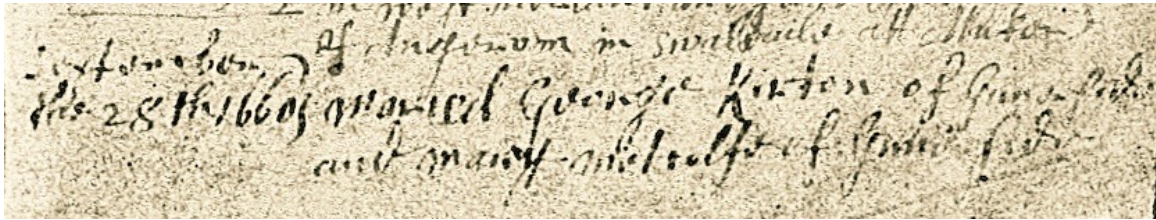 of Angerom in Swaldaile att Muker
September
the 28th 1660 Maried George Kirton of Guner side
and Mary Metcalfe of Guner side